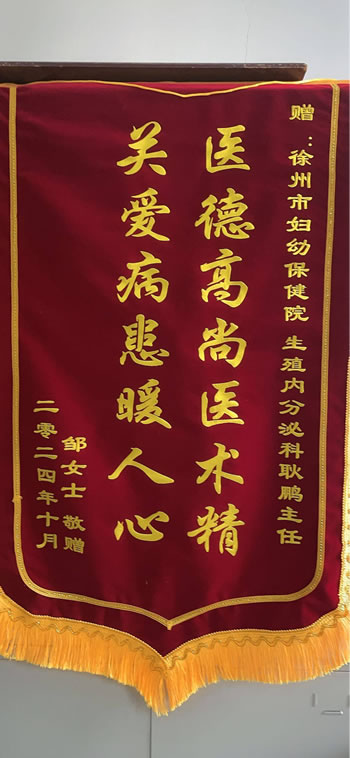 赠：徐州市妇幼保健院 生殖内分泌科耿鹏主任
医德高尚医术精
关爱病患暖人心
邹女士 敬赠
二零二四年十月